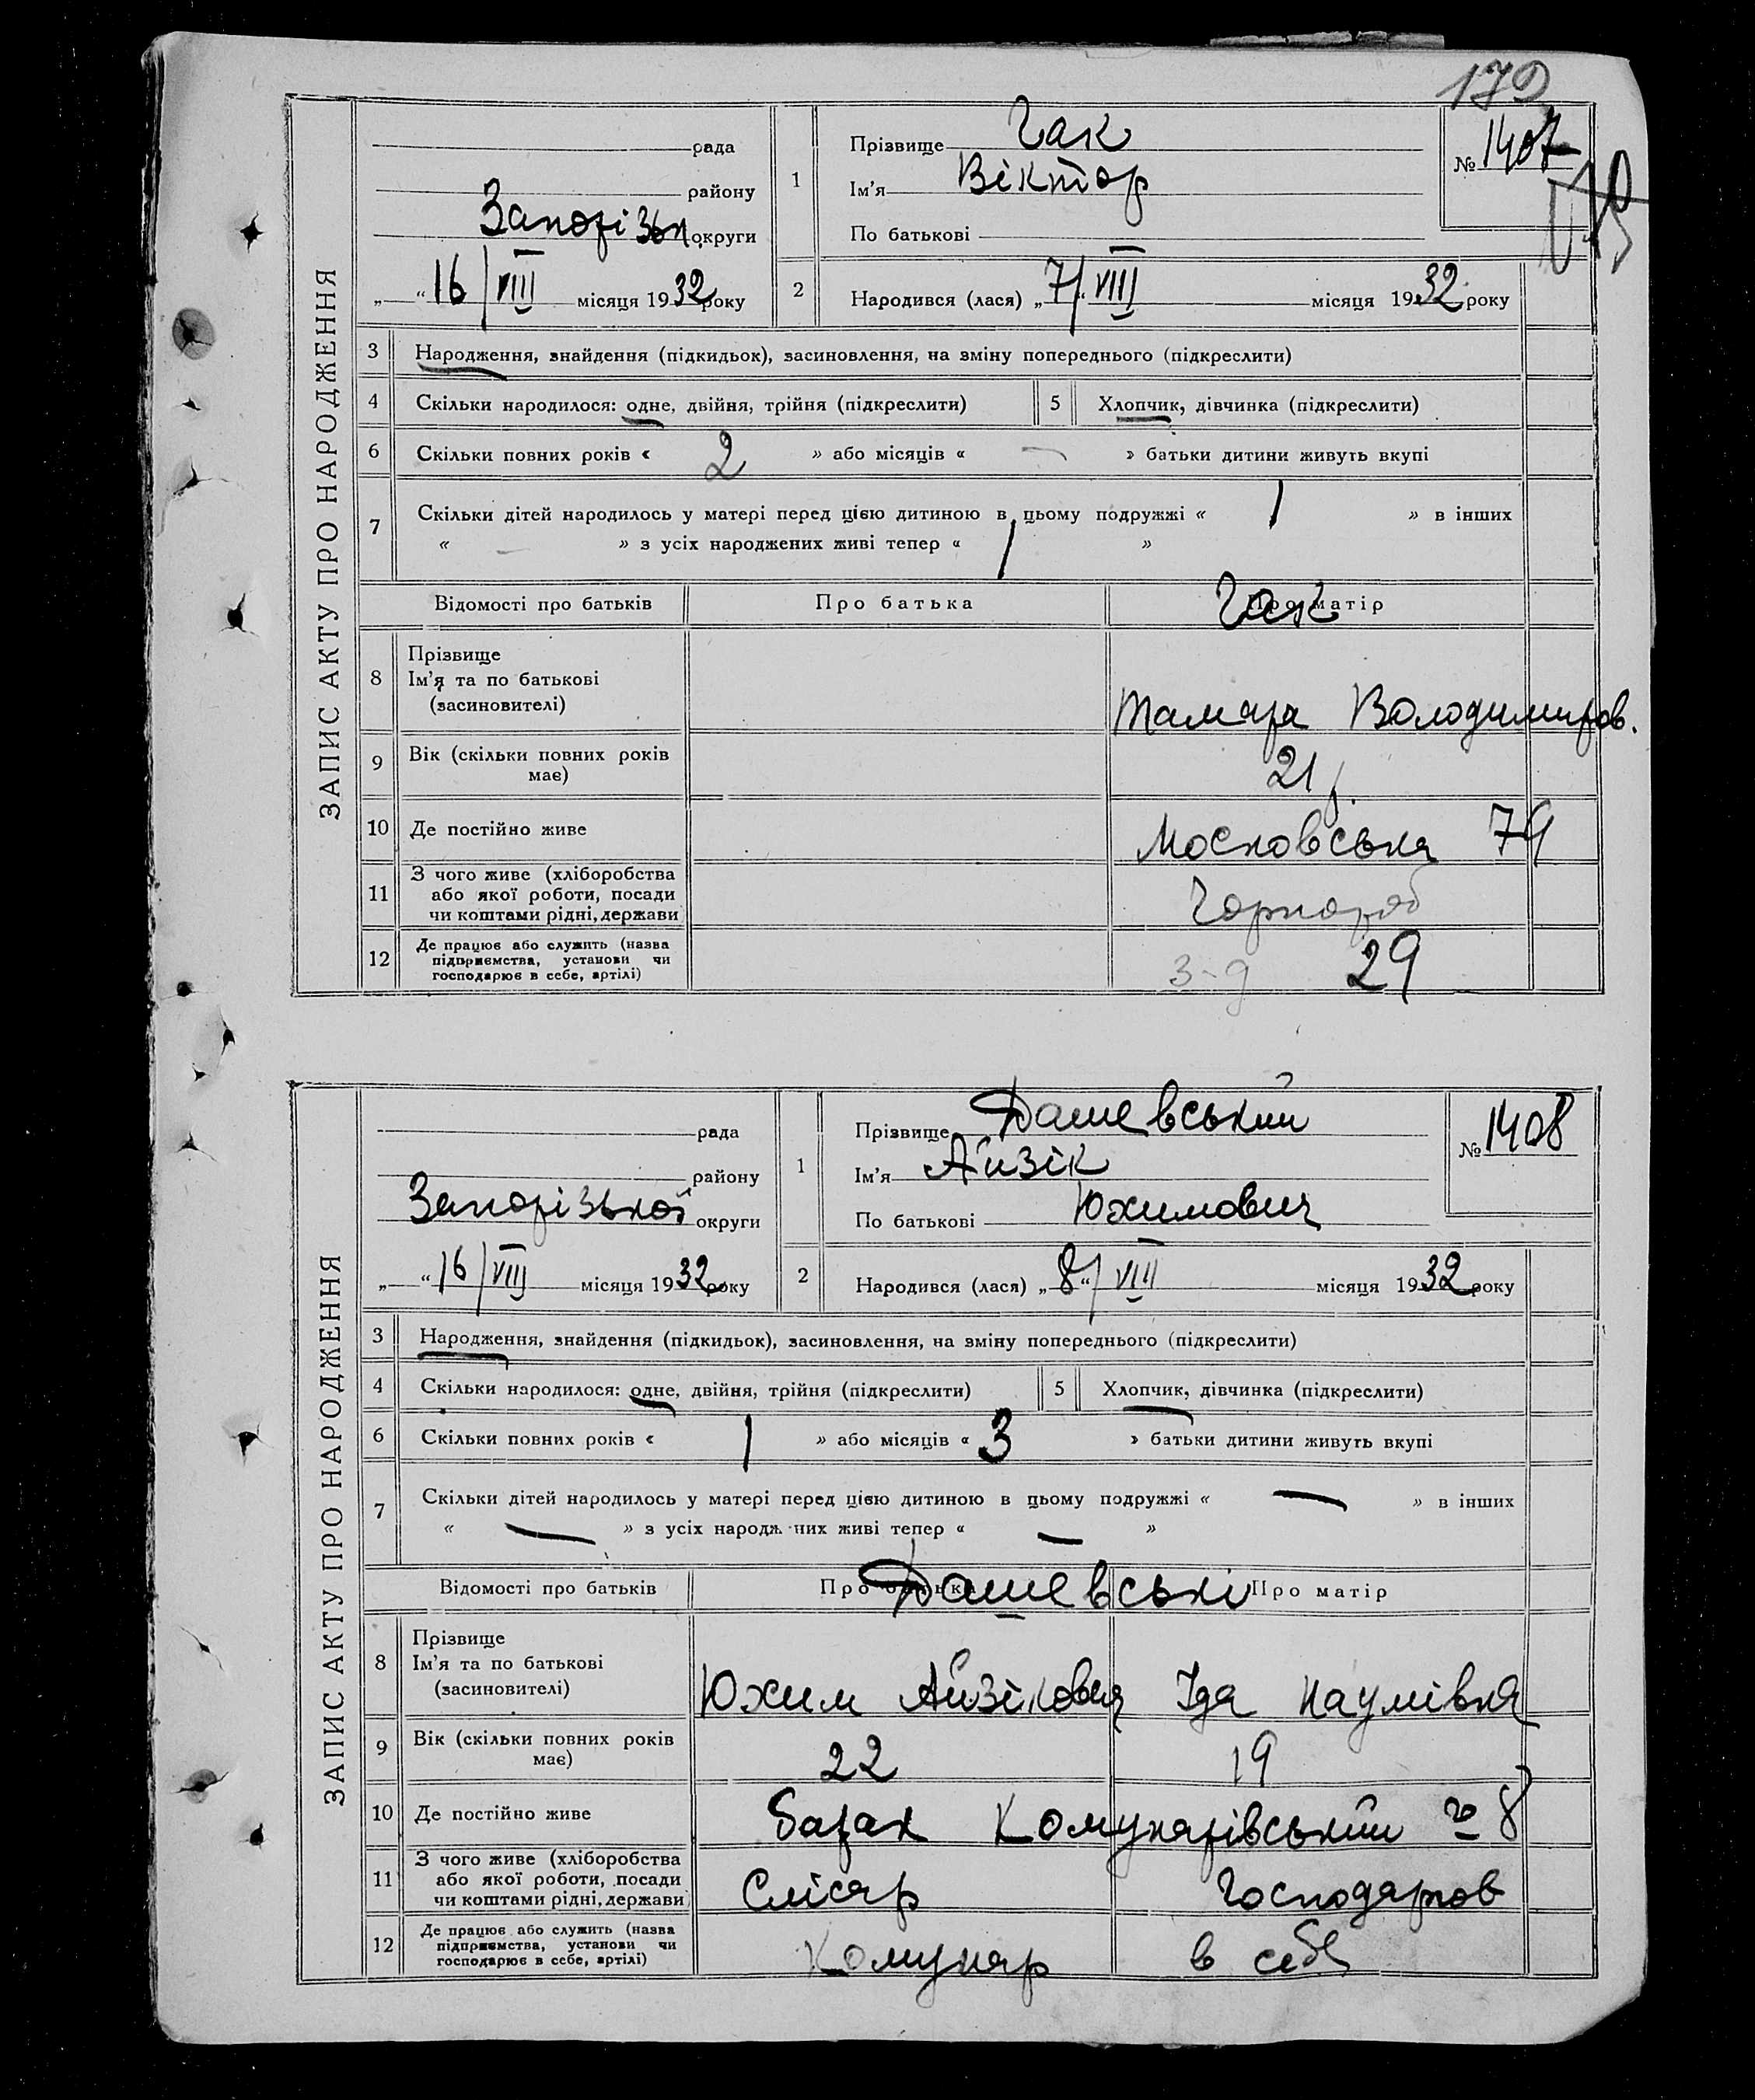 179
ЗАПИС АКТУ ПРО НАРОДЖЕННЯ
рада
району
Запорізьк округи
„ “ 16/VIII місяця 1932 року
1 Прізвище Гак
Ім'я Віктор
По батькові
№ 1407
2 Народився (лася) „7/“ VIII місяця 1932 року
3 Народження, знайдення (підкидьок), засиновлення, на зміну попереднього (підкреслити)
4 Скільки народилося: одне, двійня, трійня (підкреслити) 5 Хлопчик, дівчинка (підкреслити)
6 Скільки повних років « 2 » або місяців « — » батьки дитини живуть вкупі
7 Скільки дітей народилось у матері перед цією дитиною в цьому подружжі « 1 » в інших
« — » з усіх народжених живі тепер « 1 »
Відомості про батьків Про батька Про матір
Гак
8 Прізвище
Ім'я та по батькові
(засиновителі)
Тамара Володимиров.
9 Вік (скільки повних років
має)
21 р.
10 Де постійно живе Московська 79
11 З чого живе (хліборобства
або якої роботи, посади
чи коштами рідні, держави
Чорнороб
12 Де працює або служить (назва
підприємства, установи чи
господарює в себе, артілі)
з-д 29
ЗАПИС АКТУ ПРО НАРОДЖЕННЯ
рада
району
Запорізької округи
„ “ 16/VIII місяця 1932 року
1 Прізвище Дашевський
Ім'я Айзік
По батькові Юхимович
№ 1408
2 Народився (лася) „8“/VIII місяця 1932 року
3 Народження, знайдення (підкидьок), засиновлення, на зміну попереднього (підкреслити)
4 Скільки народилося: одне, двійня, трійня (підкреслити) 5 Хлопчик, дівчинка (підкреслити)
6 Скільки повних років « 1 » або місяців « 3 » батьки дитини живуть вкупі
7 Скільки дітей народилось у матері перед цією дитиною в цьому подружжі « — » в інших
« — » з усіх народж них живі тепер « — »
Відомості про батьків Про батька Про матір
Дашевські
8 Прізвище
Ім'я та по батькові
(засиновителі)
Юхим Айзікович Іда Наумівна
9 Вік (скільки повних років
має)
22 19
10 Де постійно живе Барак Комунарівський № 8
11 З чого живе (хліборобства
або якої роботи, посади
чи коштами рідні, держави
Слісар Господарюв
12 Де працює або служить (назва
підприємства, установи чи
господарює в себе, артілі)
Комунар в себе